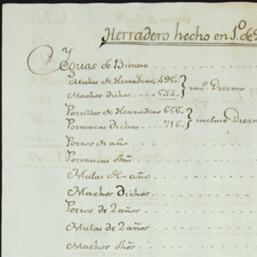 Herradero hecho en 1.º de
Yeguas de Bienene
Mulas de Herradero 495.
Machos dichos 534. inc.º Diezmo
Potrillos de Herradero 656.
Potrancas dichas 716. incluso Diezm
Potros de año
Potrancas dhas
Mulas de año
Machos dichos
Potros de 2 años
Mulas de 2 años
Machos dhos